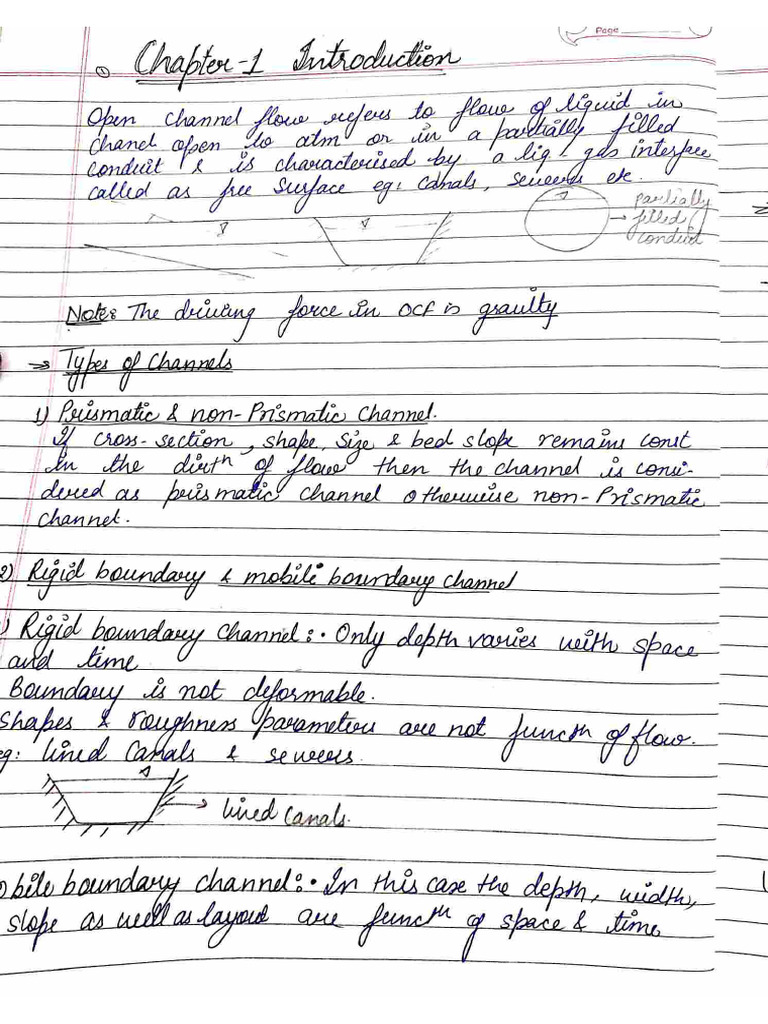 Page
① Chapter-1 Introduction
Open channel flow refers to flow of liquid in
chanel open to atm or in a partially filled
conduit & is characterised by a liq - gas interface
called as free surface eg: canals, sewers etc.
partially
filled
conduit
Note: The driving force in OCF is gravity
→ Types of Channels
1) Prismatic & non-Prismatic Channel.
If cross-section, shape, size & bed slope remains const
in the dirth of flow then the channel is consi-
dered as prismatic channel otherwise non-Prismatic
channel.
2) Rigid boundary & mobile boundary channel
) Rigid boundary channel:• Only depth varies with space
and time
Boundary is not deformable.
Shapes & roughness parameters are not functn of flow.
eg: lined canals & sewers.
→ lined canals.
obile boundary channel:• In this case the depth, width,
slope as well as layout are functn of space & time